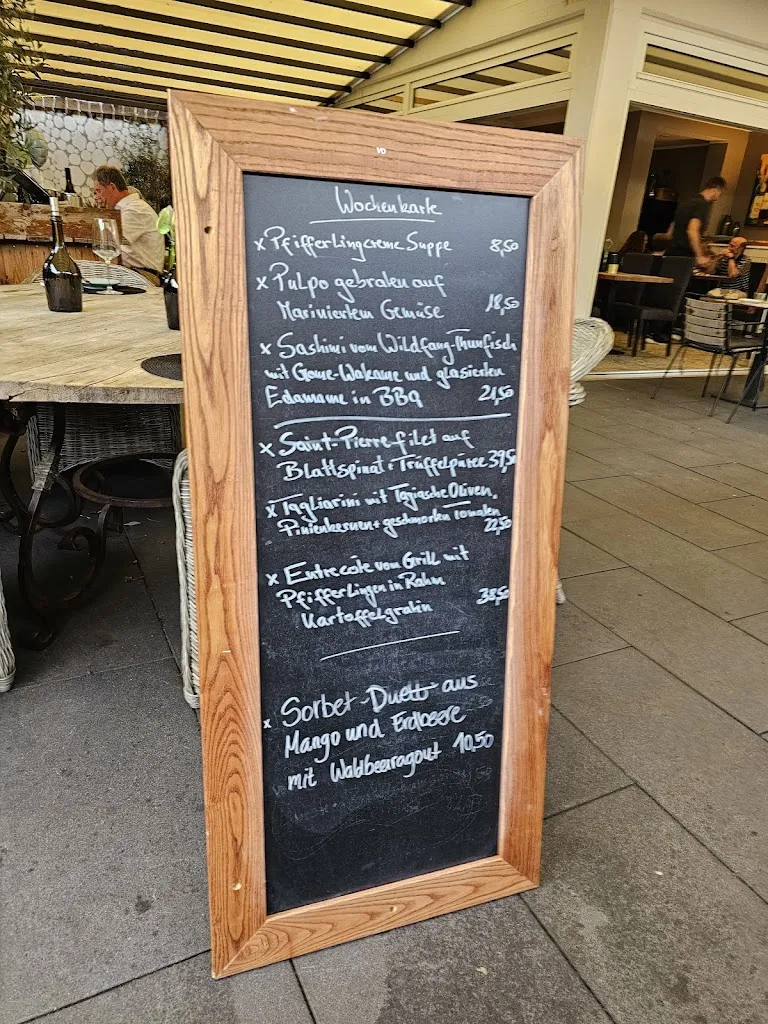 VD
Wochenkarte
x Pfifferlingcreme Suppe 8,50
x Pulpo gebraten auf
Mariniertem Gemüse 18,50
x Sashimi vom Wildfang-Thunfisch
mit Gome-Wakame und glasierten
Edamame in BBQ 21,50
x Saint-Pierrefilet auf
Blattspinat + Trüffelpüree 39,50
x Tagliarini mit Tagiasche Oliven,
Pinienkernen + geschmorten Tomaten
22,50
x Entrecote vom Grill mit
Pfifferlingen in Rahm
Kartoffelgratin 38,50
x Sorbet-Duett aus
Mango und Erdbeere
mit Waldbeerragout 10,50